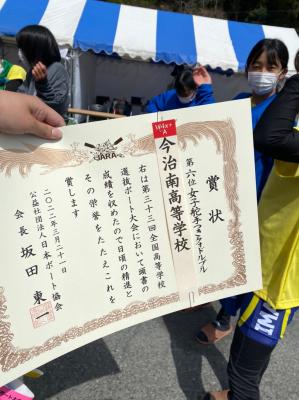 JARA
W4x+
A
賞状
第六位 女子舵手つきクォドルプル
今治南高等学校
右は第三十三回全国高等学校
選抜ボート大会において頭書の
成績を収めたので日頃の精進と
その栄誉をたたえこれを
賞します
二〇二二年三月二十一日
公益社団法人日本ボート協会
会長 坂田東一